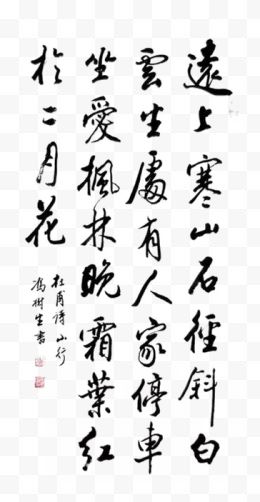 遠上寒山石徑斜白
雲生處有人家停車
坐愛楓林晚霜葉紅
於二月花
杜甫詩山行
馮樹生書